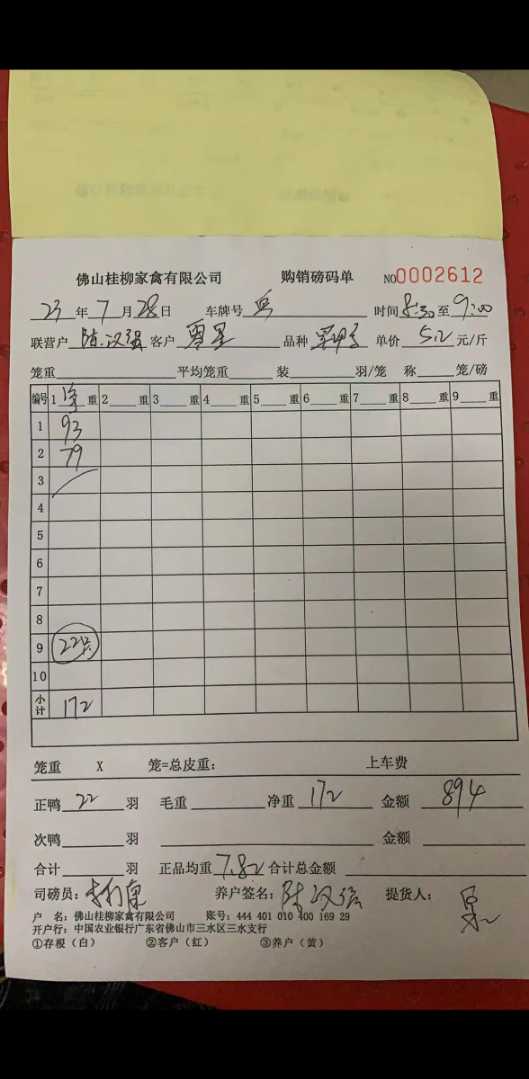 佛山桂柳家禽有限公司 购销磅码单 NO0002612
23年7月28日 车牌号 时间8:30至9:00
联营户 陈汉强 客户 零星 品种 单价 5.2 元/斤
笼重 平均笼重 装 羽/笼 称 笼/磅
编号 1 重 2 重 3 重 4 重 5 重 6 重 7 重 8 重 9 重
1 93
2 79
3
4
5
6
7
8
9 22只
10
小计 172
笼重 X 笼=总皮重: 上车费
正鸭 22 羽 毛重 净重 172 金额 894
次鸭 羽 金额
合计 羽 正品均重 7.82 合计总金额
司磅员: 养户签名: 陈汉强 提货人:
户 名: 佛山桂柳家禽有限公司 账号: 444 401 010 400 169 29
开户行: 中国农业银行广东省佛山市三水区三水支行
①存根(白) ②客户(红) ③养户(黄)